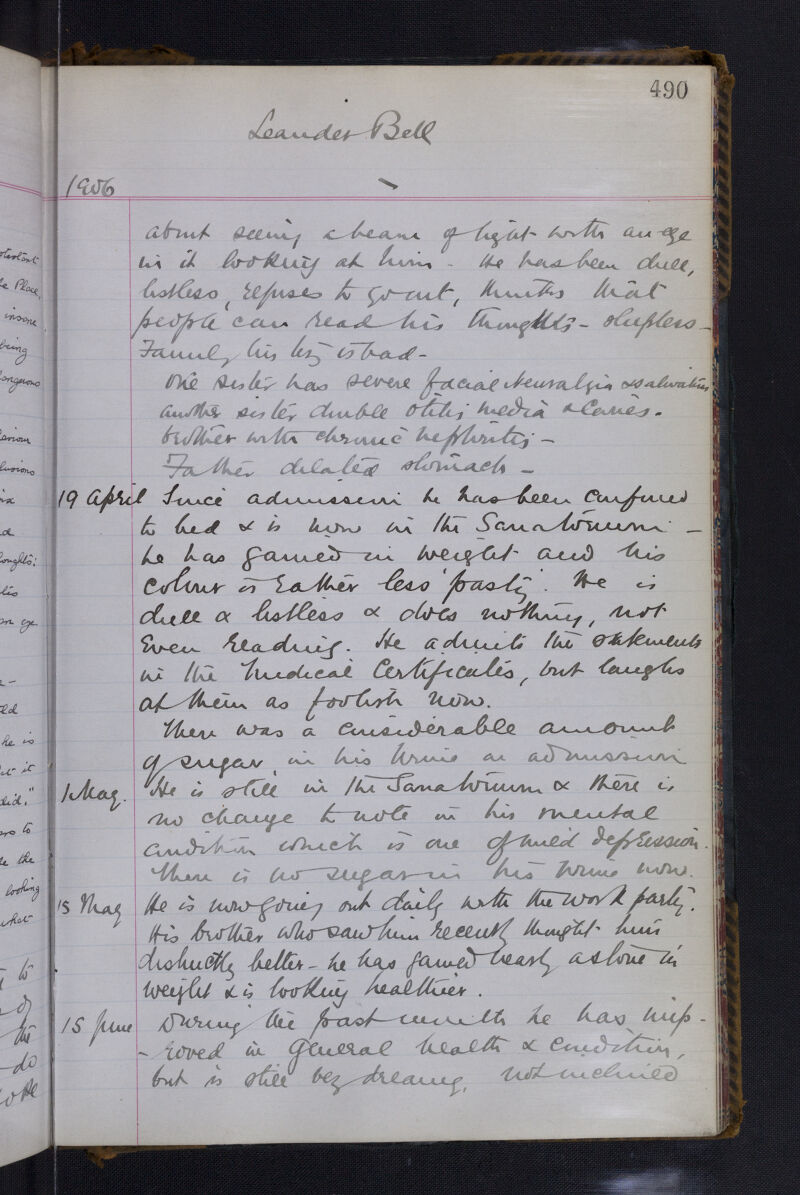 490
Leander Bell
1906
about seeing a beam of light with an eye
in it looking at him - He has been dull,
listless, refuses to go out, thinks that
people can read his thoughts - sleepless -
Family history is bad -
One sister has severe facial Neuralgia & salivation
another sister double otitis media & caries.
brother with chronic nephritis -
Father dilated stomach -
19 April Since admission he has been confined
to bed & is now in the Sanatorium -
he has gained in weight and his
colour is rather less 'pasty'. He is
dull & listless & does nothing, not
even reading. He admits the statements
in the Medical Certificates, but laughs
at them as foolish now.
There was a considerable amount
of sugar in his urine on admission
1 May. He is still in the Sanatorium & there is
no change to note in his mental
condition which is one of mild depression.
There is no sugar in his urine now.
15 May He is now going out daily with the work party.
His brother who saw him recently thought him
distinctly better - he has gained nearly a stone in
weight & is looking healthier.
15 June During the past month he has imp-
-roved in general health & condition,
but is still very dreamy, not inclined
otestant
Place,
insone
being
looking
what
he is
did."
to
the
do